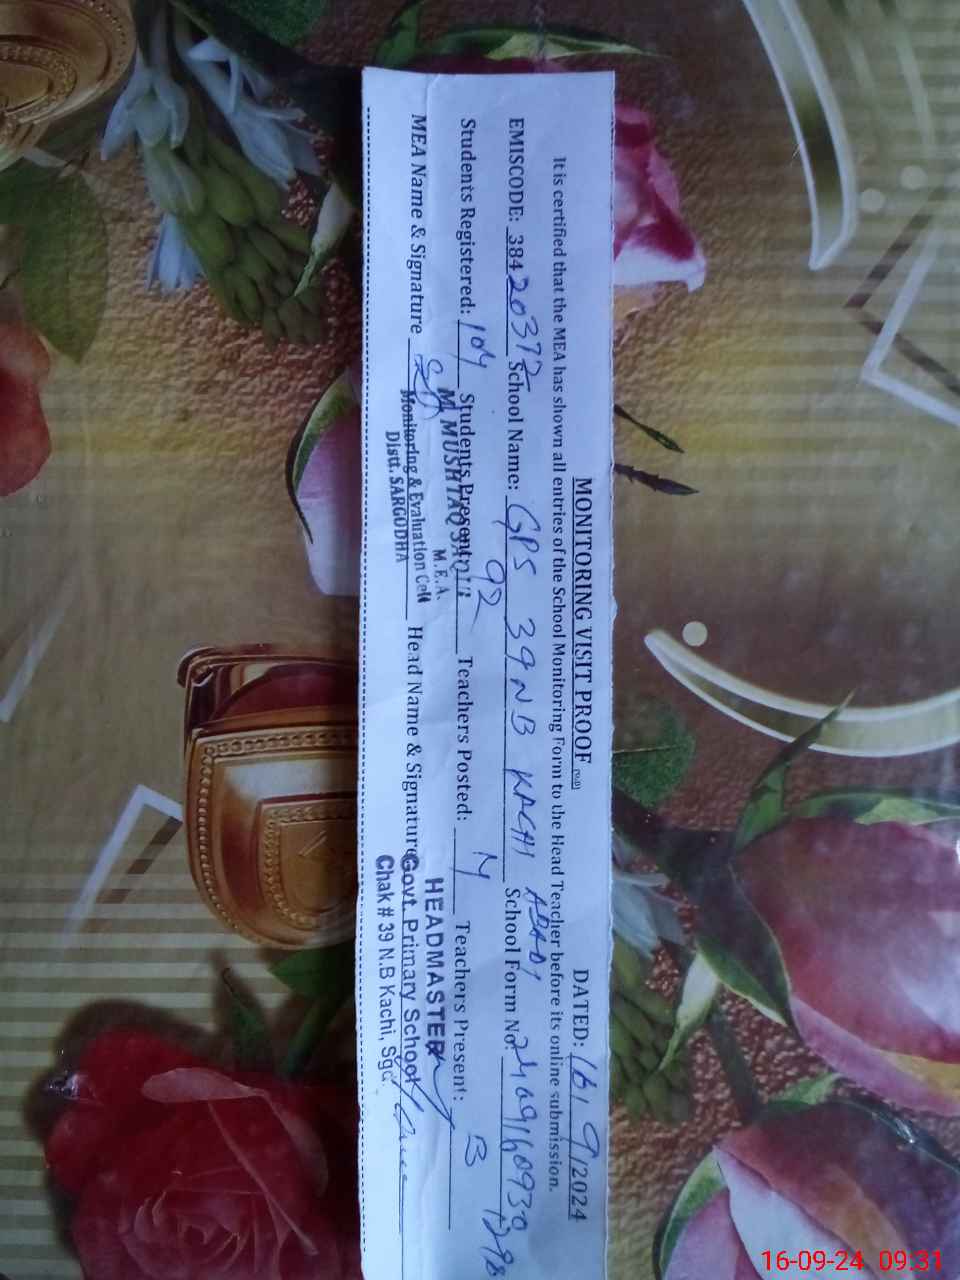 MONITORING VISIT PROOF DATED: 16/ 9/2024
It is certified that the MEA has shown all entries of the School Monitoring Form to the Head Teacher before its online submission.
EMISCODE: 38420372 School Name: GPS 39 NB KACHI ABADI School Form No. 24091609301298
Students Registered: 104 Students Present: 92 Teachers Posted: 4 Teachers Present: 3
MEA Name & Signature Head Name & Signature
M. MUSHTAQ SAQIB
M.E.A.
Monitoring & Evaluation Cell
Distt. SARGODHA
HEADMASTER
Govt. Primary School
Chak # 39 N.B Kachi, Sgd.
16-09-24 09:31